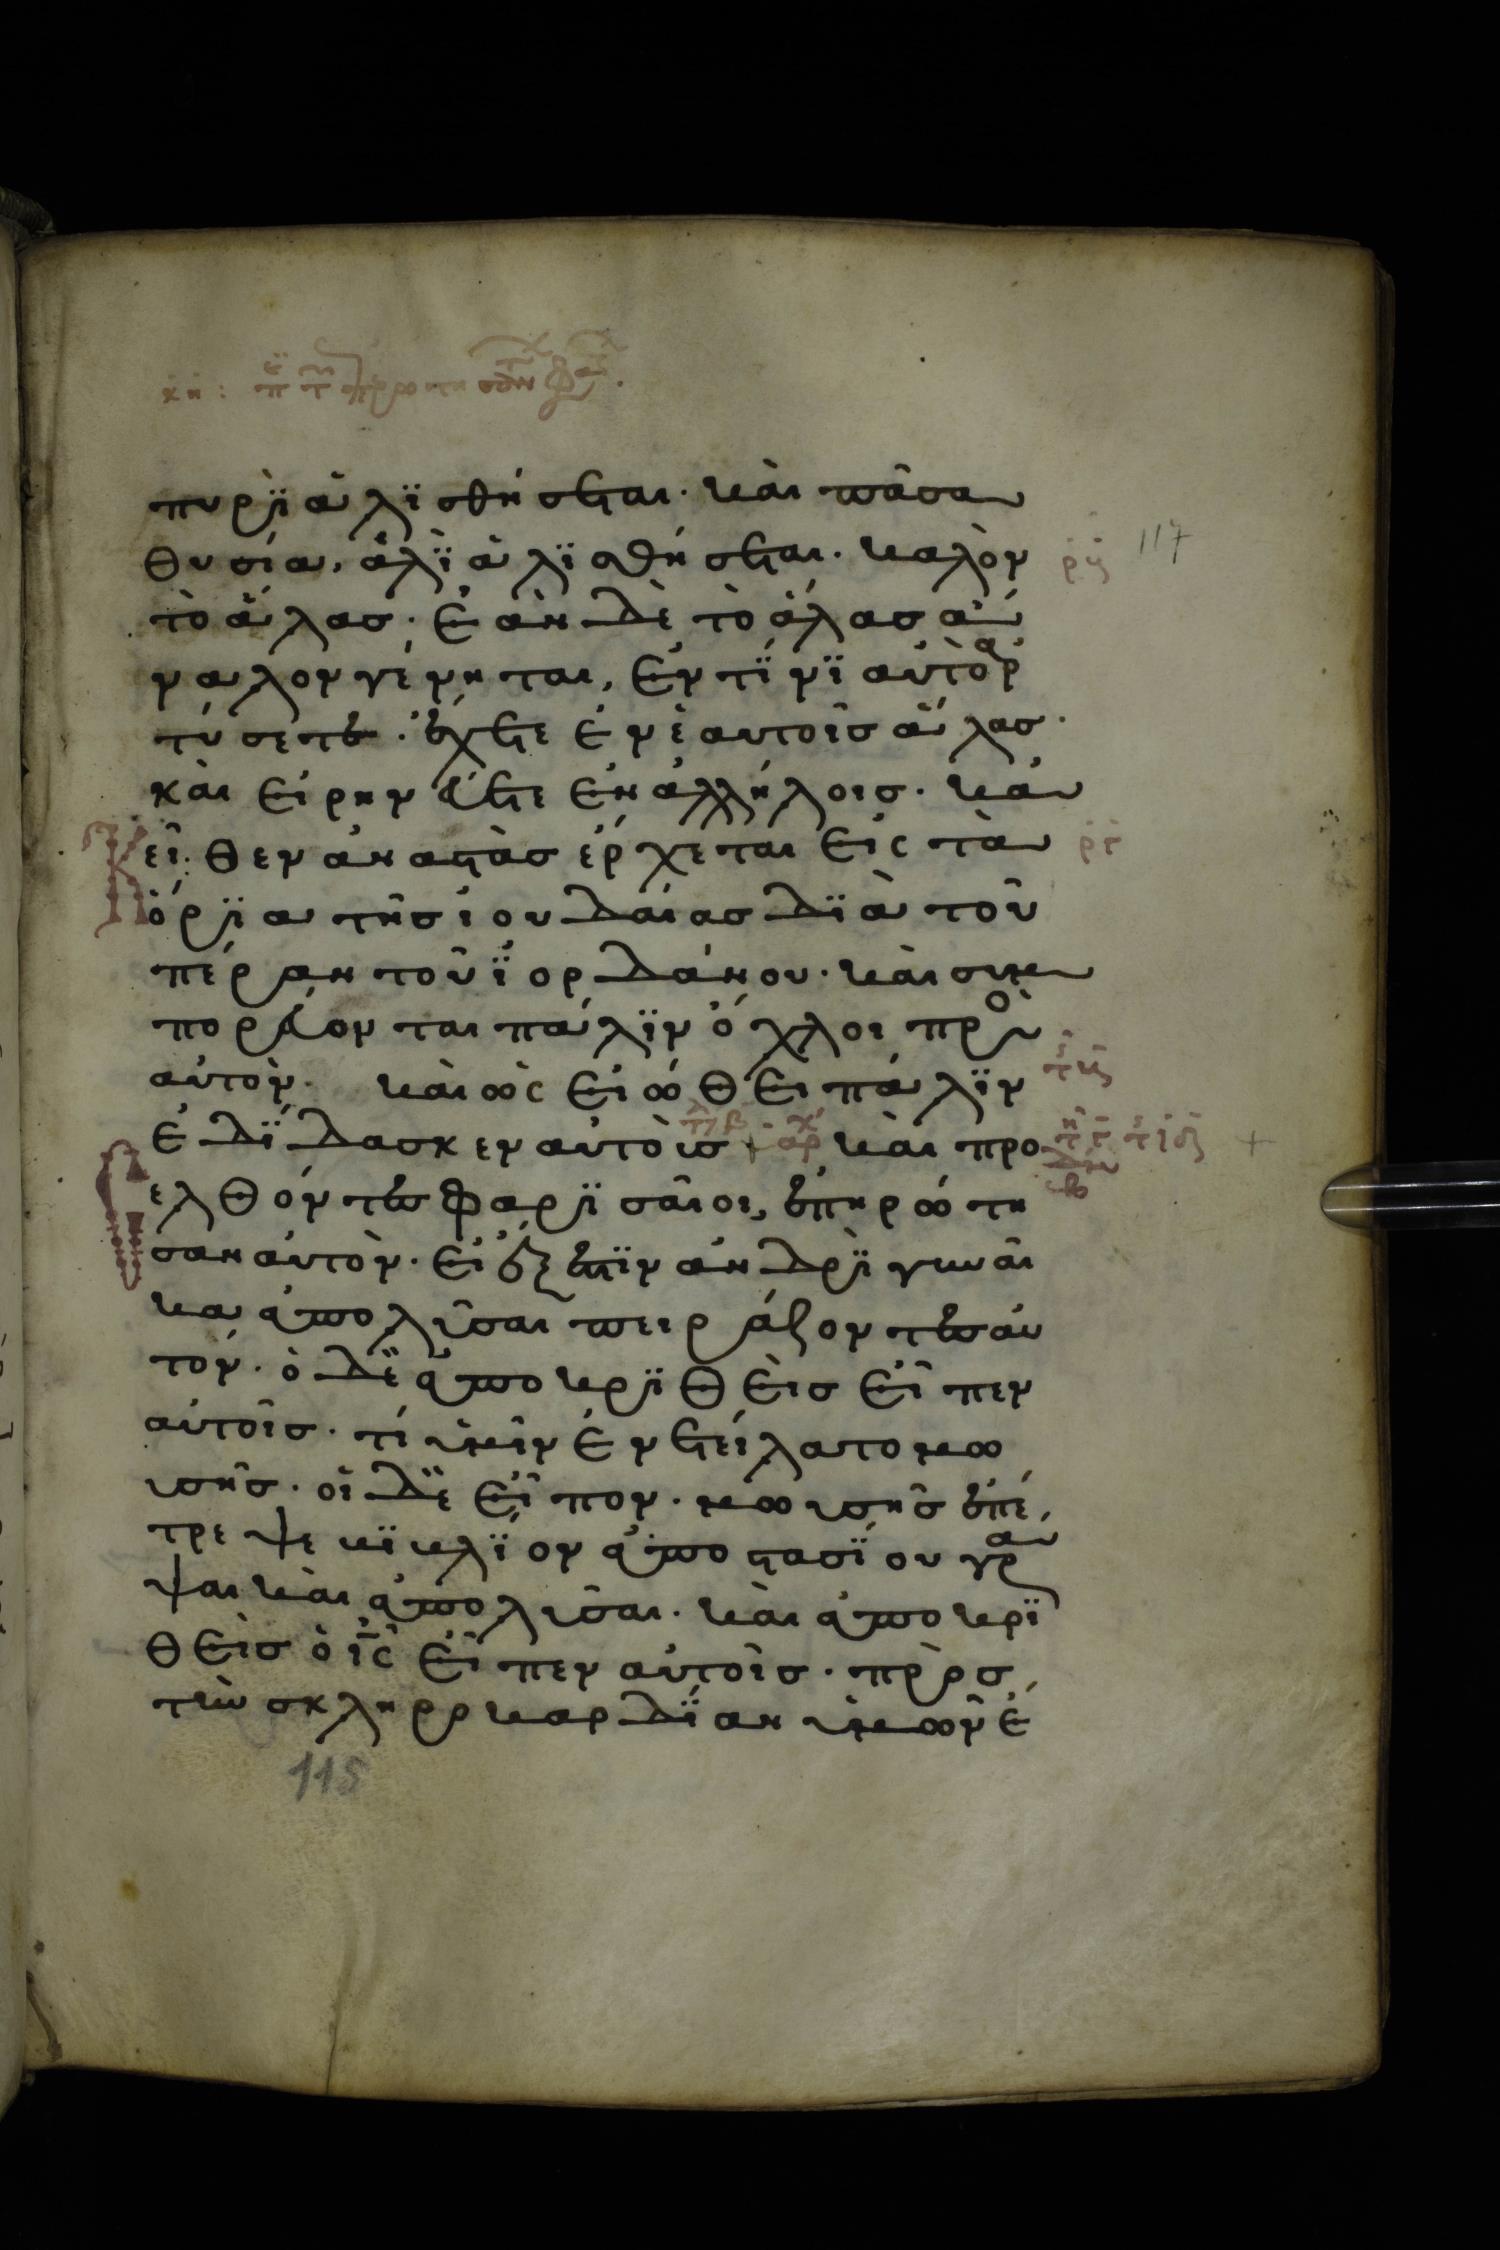 πυρὶ ἁλισθήσεται· καὶ πᾶσα
θυσία, ἁλὶ ἁλισθήσεται. καλὸν
117
τὸ ἅλας· ἐὰν δὲ τὸ ἅλας ἄ
ναλον γένηται, ἐν τίνι αὐτὸ ἀρ
τύσετε· ἔχετε ἐν ἑαυτοῖς ἅλας·
καὶ εἰρηνεύετε ἐν ἀλλήλοις· κἀ
κεῖθεν ἀναστὰς ἔρχεται εἰς τὰ
ὅρια τῆς ἰουδαίας διὰ τοῦ
πέραν τοῦ ἰορδάνου· καὶ συμ
πορεύονται πάλιν ὄχλοι πρὸς
αὐτὸν. καὶ ὡς εἰώθει πάλιν
ἐδίδασκεν αὐτοὺς + καὶ προ
ελθόντες φαρισαῖοι, ἐπηρώτη
σαν αὐτὸν· εἰ ἔξεστιν ἀνδρὶ γυναῖ
κα ἀπολῦσαι πειράζοντες αὐ
τόν· ὁ δὲ ἀποκριθεὶς εἶπεν
αὐτοῖς· τί ὑμῖν ἐνετείλατο μω
υσῆς· οἱ δὲ εἶπον· μωυσῆς ἐπέ
τρεψε βιβλίον ἀποστασίου γρά
ψαι καὶ ἀπολῦσαι· καὶ ἀποκρι
θεὶς ὁ ις εἶπεν αὐτοῖς· πρὸς
τὴν σκληροκαρδίαν ὑμῶν ἔ
115